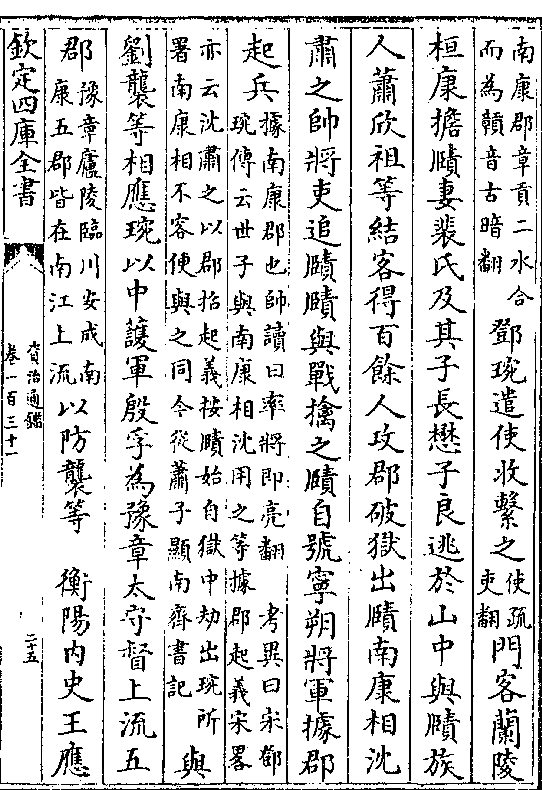 南康郡章貢二水合
而為贛音古暗翻
鄧琬遣使收繫之
使疏
吏翻
門客蘭陵
桓康擔賾妻裴氏及其子長懋子良逃於山中與賾族
人蕭欣祖等結客得百餘人攻郡破獄出賾南康相沈
肅之帥將吏追賾賾與戰擒之賾自號寧朔將軍據郡
起兵
據南康郡也帥讀曰率將即亮翻 考異曰宋鄧
琬傳云世子與南康相沈用之等據郡起義宋畧
亦云沈肅之以郡招起義按賾始自獄中劫出琬所
署南康相不容便與之同今從蕭子顯南齊書記
與
劉襲等相應琬以中護軍殷孚為豫章太守督上流五
郡
豫章廬陵臨川安成南
康五郡皆在南江上流
以防襲等 衡陽内史王應
欽定四庫全書
資治通鑑
卷一百三十一
二十五